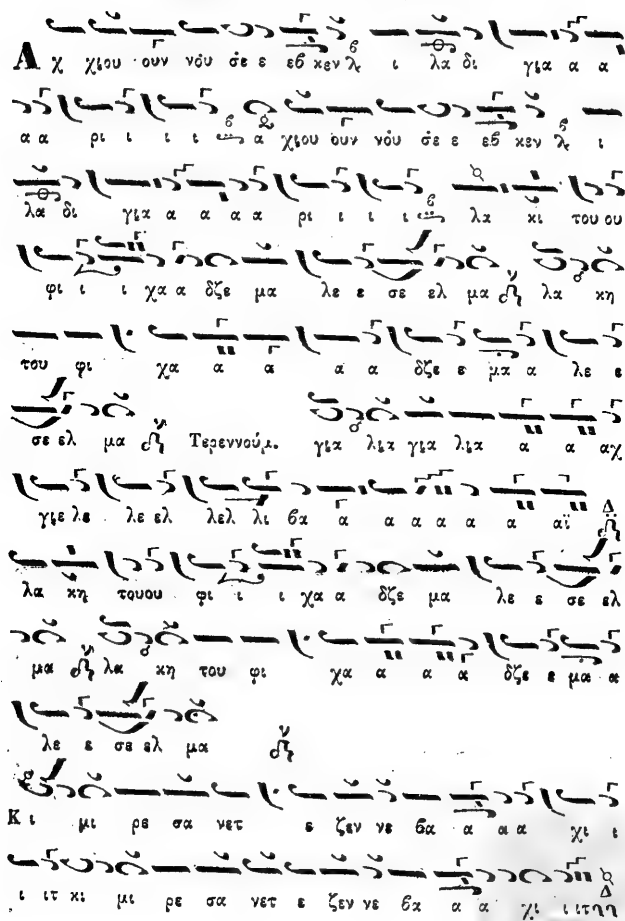 Α χ χιου ουν νόυ σε ε εβ κεν λ ι λα δι για α α
α α ρι ι ι ι α χιου ουν νόυ σε ε εβ κεν λ ι
λα δι για α α α α ρι ι ι ι λα κι του ου
φι ι ι χα α δζε μα λε ε σε ελ μα λα κη
του φι χα α α α α δζε ε μα α λε ε
σε ελ μα Τερεννούμ. για λια για λια α α αχ
γιε λε λε ελ λελ λι βα α α α α α α αϊ
λα κη του ου φι ι ι χα α δζε μα λε ε σε ελ
μα λα κη του φι χα α α α δζε ε μα α
λε ε σε ελ μα
Κ ι μι ρε σα νετ ε ζεν νε βα α α α χι ι
ι ιτ κι μι ρε σα νετ ε ζεν νε βα α α χι ι ιτηη